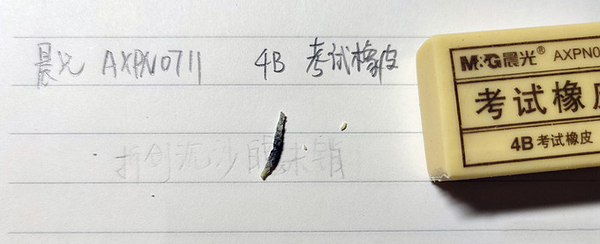 晨光 AXPN0711 4B 考试橡皮
M&G晨光® AXPN0
考试橡皮
4B考试橡皮